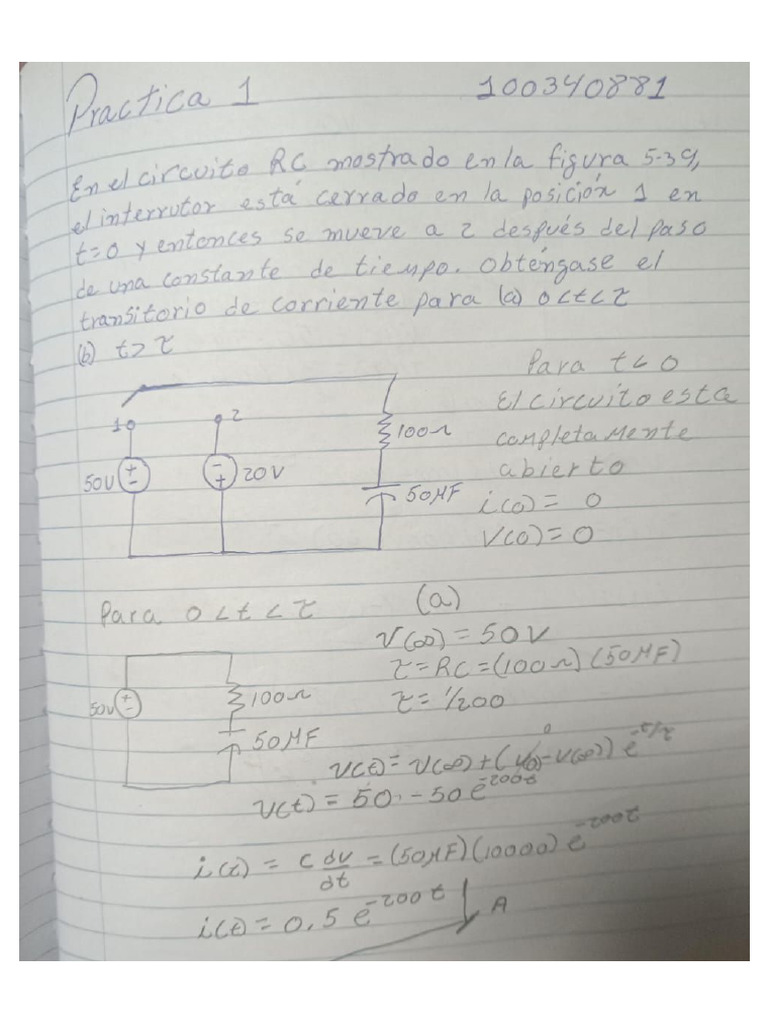 Practica 1
100340881
En el circuito RC mostrado en la figura 5-39,
el interrutor está cerrado en la posición 1 en
t=0 y entonces se mueve a 2 después del paso
de una constante de tiempo. Obténgase el
transitorio de corriente para (a) 0<t<τ
(b) t>τ
Para t<0
El circuito esta
completamente
abierto
i(0)= 0
V(0)=0
1
2
50V
20V
100Ω
50μF
Para 0<t<τ
(a)
V(∞)=50V
τ=RC=(100Ω)(50μF)
τ=1/200
50V
100Ω
50μF
0
V(t)= V(∞)+(V(0)-V(∞)) e^-t/τ
V(t)= 50 - 50 e^-200t
i(t) = C dv/dt = (50μF)(10000) e^-200t
i(t)= 0.5 e^-200t A